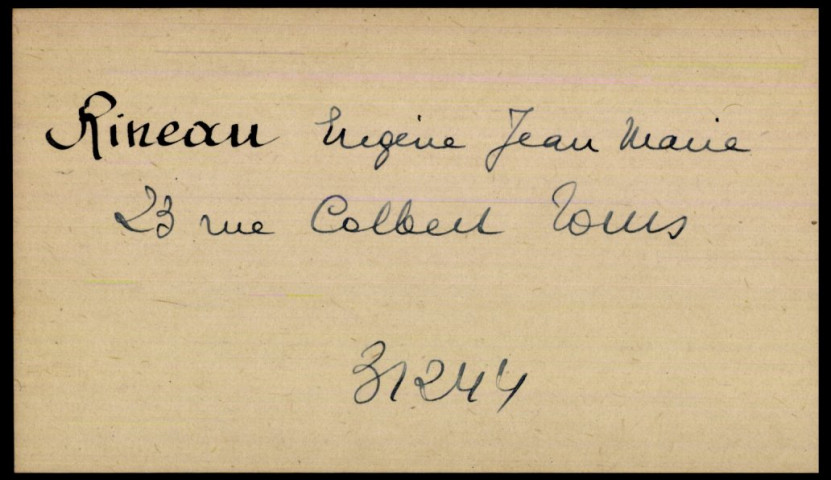 Rineau Eugène Jean Marie
23 rue Colbert Tours
31244